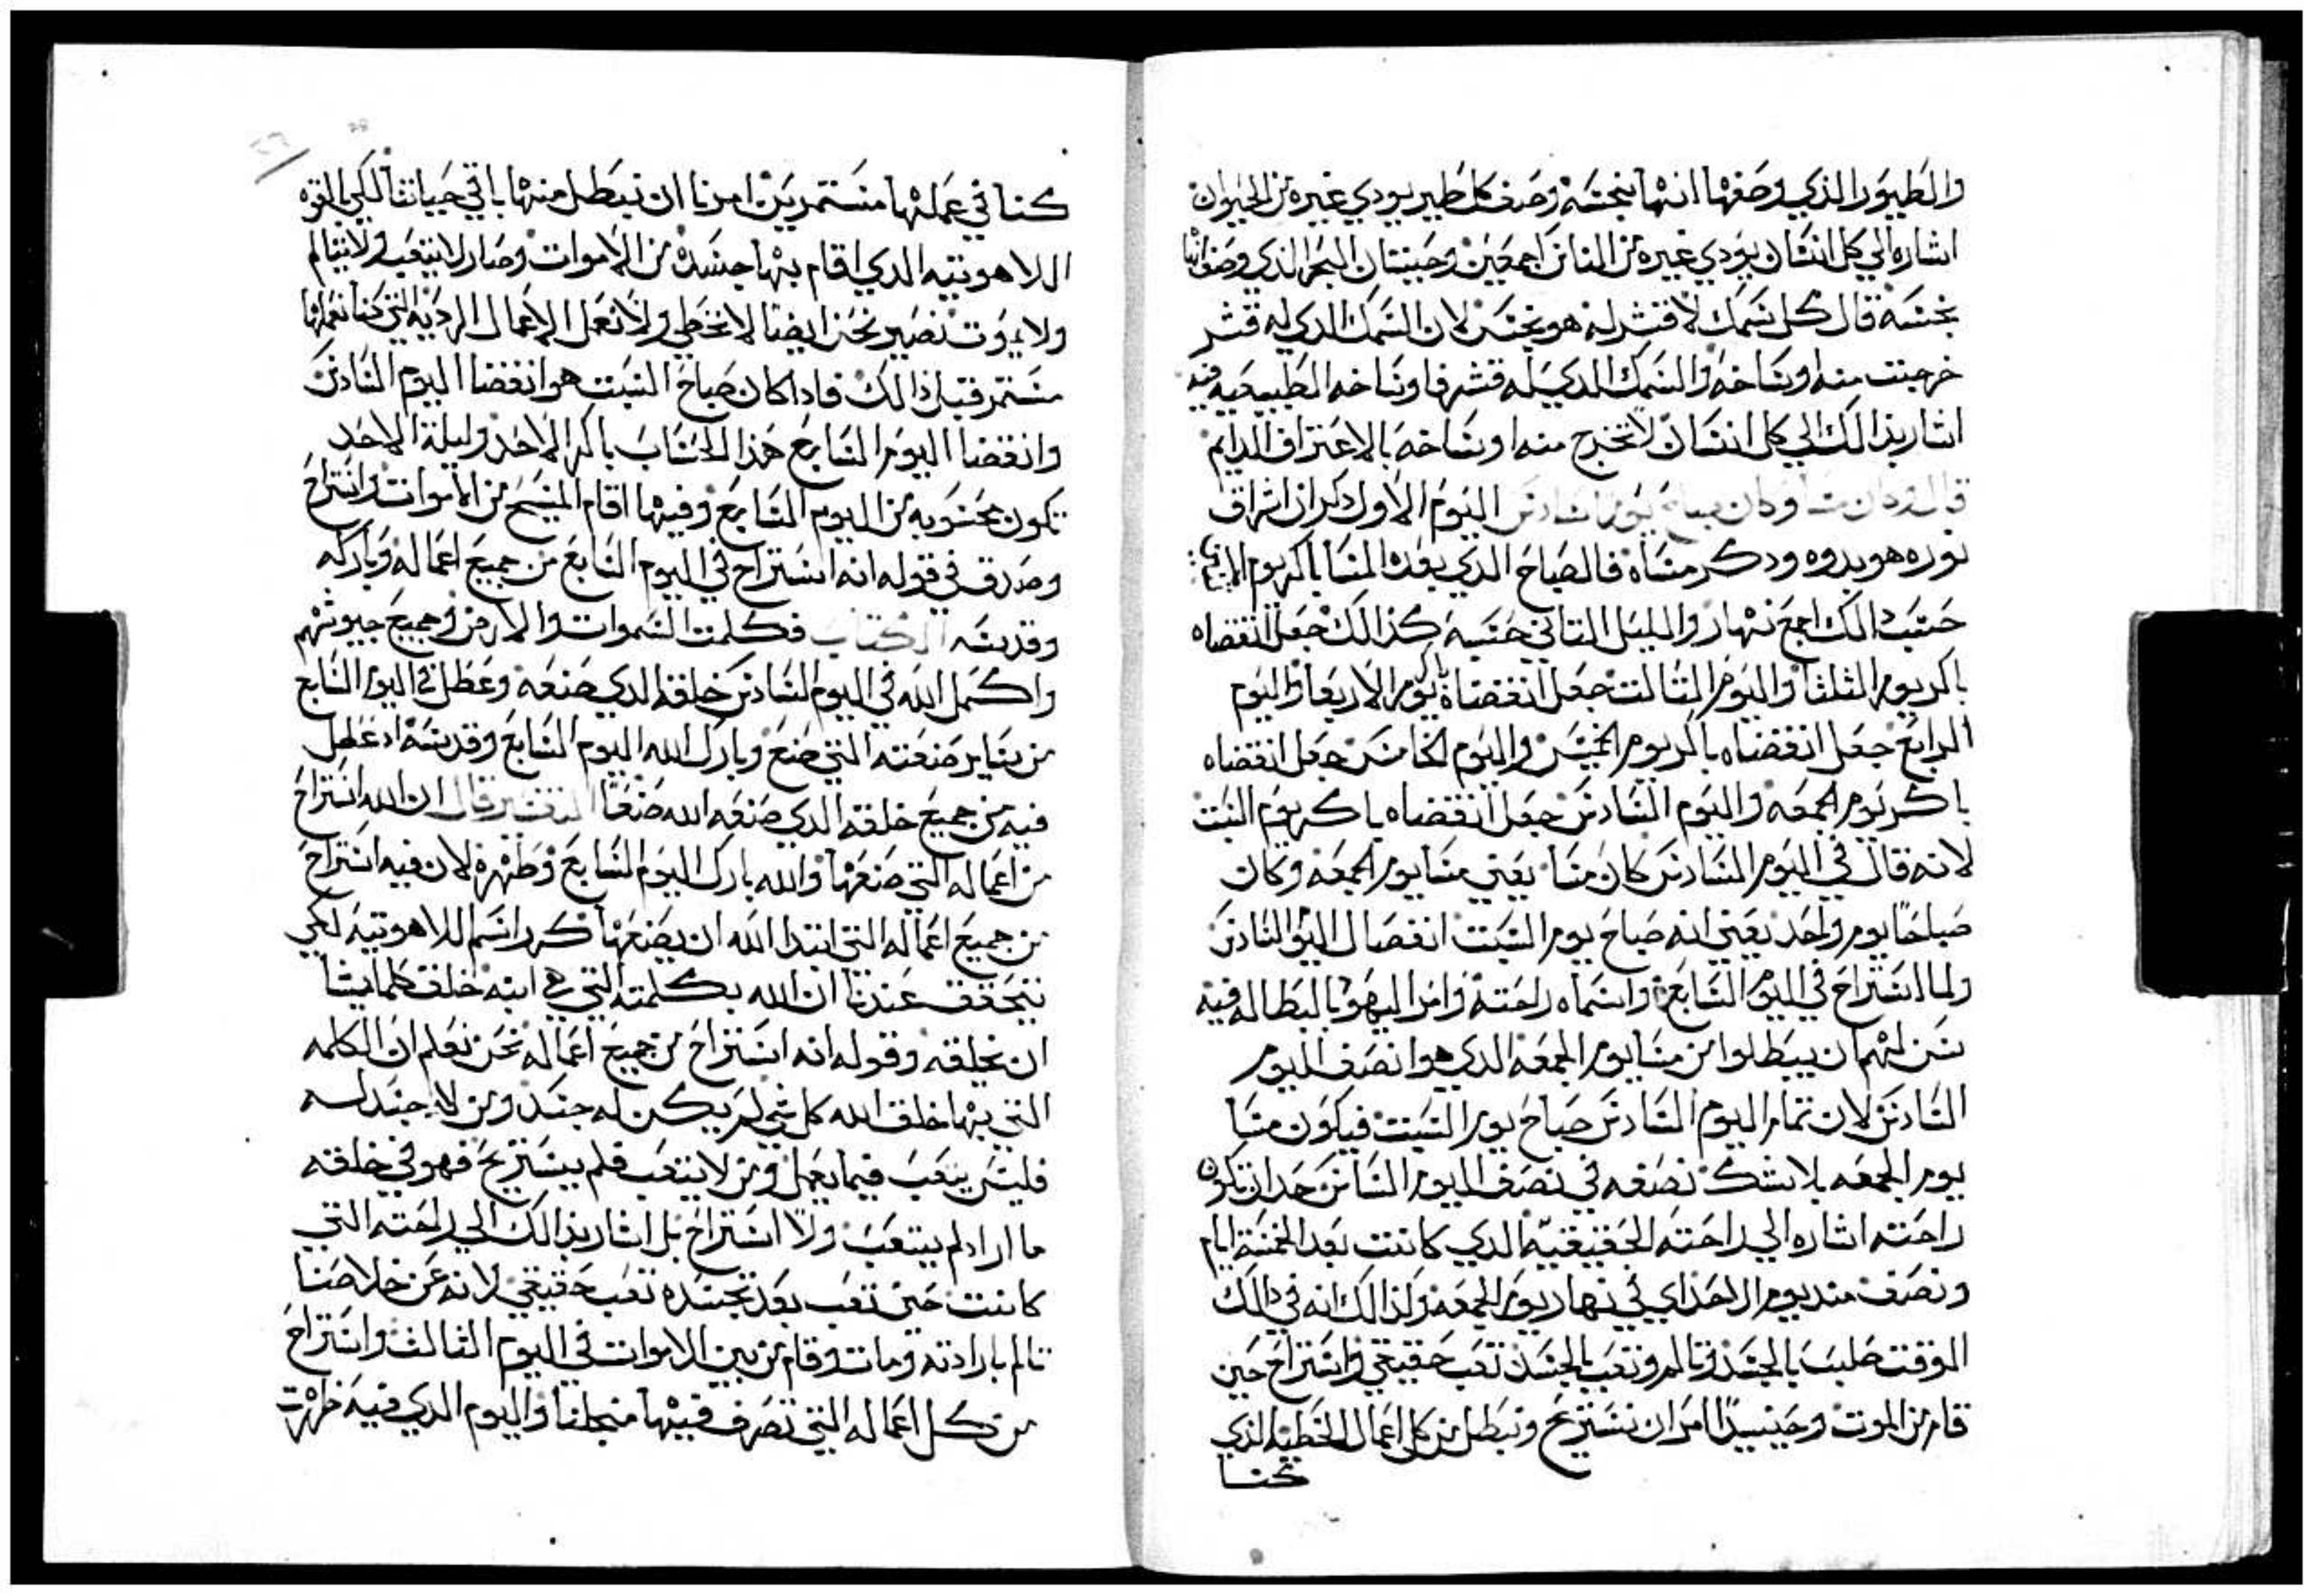 والطيور الذي وصفها انها نجسه وصف كل طير يودي غيره من الحيوان
اشاره الي كل انسان يودي غيره من الناس اجمعين وحيتان البحر الذي وصف انها
نجسه قال كل سمك لا قشر له هو نجس لان السمك الدي له قشر
خرجت منه اوساخه والسمك الدي ليس له قشر فاوساخه الطبيعيه فيه
اشار بدالك الي كل انسان لا تخرج منه اوساخه بالاعتراف الدايم
قال وكان مسا وكان صباح يوم سادس اليوم الاول ذكر ان اشراق
نوره هو بدوه ودكر مساه فالصباح الدي بعد المسا باكر يوم الاتنين
حسب دالك اجمع نهار والليل التاني حسبه كذالك جعل انقضاه
باكر يوم الثلثا واليوم التالت جعل انقضاه باكر يوم الاربعا واليوم
الرابع جعل انقضاه باكر يوم الخميس واليوم الخامس جعل انقضاه
باكر يوم الجمعه واليوم السادس جعل انقضاه باكر يوم السبت
لانه قال في اليوم السادس كان مسا يعني مسا يوم الجمعه وكان
صباحا يوم واحد يعني انه صباح يوم السبت انفصال اليوم السادس
ولما استراح في اليوم السابع واسماه راحته وامر اليهود بالبطاله فيه
سن لهم ان يبطلوا من مسا يوم الجمعه الدي هو انصف اليوم
السادس لان تمام اليوم السادس صباح يوم السبت فيكون مسا
يوم الجمعه بلا شك نصفه في نصف اليوم السادس حد ان تكون
راحته اشاره الي راحته الحقيقيه الدي كانت بعد الخمسة ايام
ونصف مند يوم الاحد اي في نهار يوم الجمعه وكذالك انه في دالك
الوقت صلب بالجسد وتالم وتعب بالجسد تعب حقيقي واستراح حين
قام من الموت وحينيدا امر ان نستريح ونبطل من كل اعمال الخطيه الذي
كنا
كنا في عملها مستمرين امرنا ان نبطل منها باقي حياتنا لكي القوه
اللاهوتيه الدي اقام بها جسده من الاموات وصار لا يتعب ولا يتالم
ولا يموت نصير نحن ايضا لا نخطي ولا نعمل الاعمال الرديه التي كنا نعملها
مستمر قبل ذالك فادا كان صباح السبت هو انقضا اليوم السادس
وانقضا اليوم السابع هذا الحساب باكر الاحد وليلة الاحد
تكون محسوبه من اليوم السابع وفيها اقام المسيح من الاموات واستراح
وصدق في قوله انه استراح في اليوم السابع من جميع اعماله وباركه
وقدسه الكتاب فكملت السموات والارض وجميع جيوشهم
واكمل الله في اليوم السادس خلقه الدي صنعه وعطل في اليوم السابع
من ساير صنعته التي صنع وبارك الله اليوم السابع وقدسه اد عطل
فيه من جميع خلقه الدي صنعه الله صنعا التفسير قال ان الله استراح
من اعماله التي صنعها والله بارك اليوم السابع وطهره لان فيه استراح
من جميع اعماله التي ابتدا الله ان يصنعها كرر اسم اللاهوتيه لكي
يتحقق عندنا ان الله بكلمته التي هي ابنه خلق كلما يشا
ان يخلقه وقوله انه استراح من جميع اعماله نحن نعلم ان الكلمه
التي بها خلق الله كل شي لم يكن له جسد ومن لا جسد له
فليس يتعب فيما يعمل ومن لا يتعب فلم يستريح فهو في خلقته
ما اراد لم يتعب ولا استراح بل اشار بدالك الي راحته التي
كانت حين تعب بعد تجسده تعب حقيقي لانه عن خلاصنا
تالم بارادته ومات وقام من بين الاموات في اليوم الثالث واستراح
من كل اعماله التي تصرف فيها من اجلنا واليوم الدي فيه ظهرت